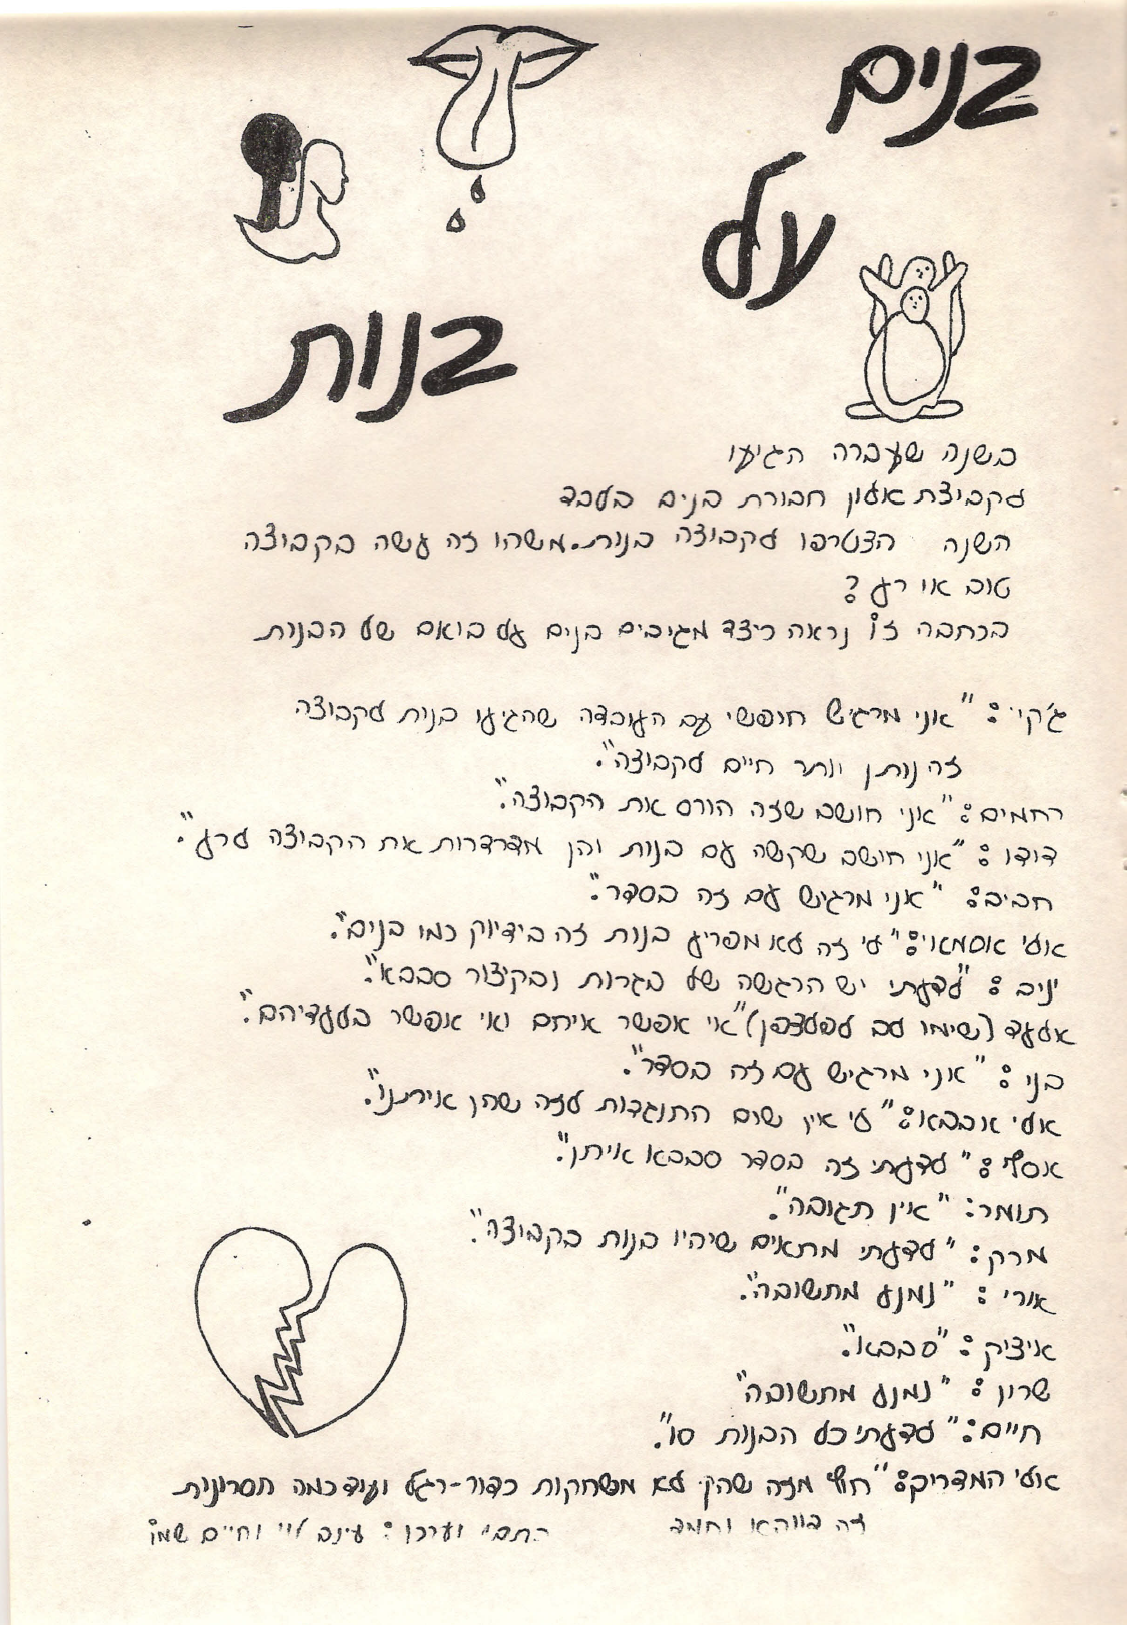 בנים
על
בנות
בשנה שעברה הגיעו
לקבוצת אלון חבורת בנים בלבד
השנה הצטרפו לקבוצה בנות. משהו זה עשה בקבוצה
טוב או רע?
בכתבה זו נראה כיצד מגיבים בנים על בואם של הבנות
ג'קי: "אני מרגיש חופשי עם העובדה שהגיעו בנות לקבוצה
זה נותן יותר חיים לקבוצה".
רחמים: "אני חושב שזה הורס את הקבוצה".
דודו: "אני חושב שקשה עם בנות והן מדרדרות את הקבוצה לרע".
חביב: "אני מרגיש עם זה בסדר".
אולי אסמאו: "לי זה לא מפריע בנות זה בידיוק כמו בנים".
יניב: "לדעתי יש הרגשה של בגרות ובקיצור סבבא".
אלעד (שימו לב לפלצפן) "אי אפשר איתם ואי אפשר בלעדיהם".
בני: "אני מרגיש עם זה בסדר".
אלי אבבאו: "לי אין שום התנגדות לזה שהן איתנו".
אסף: "לדעתי זה בסדר סבבא איתן".
תומר: "אין תגובה".
מרק: "לדעתי מתאים שיהיו בנות בקבוצה".
אורי: "נמנע מתשובה".
איציק: "סבבא".
שרון: "נמנע מתשובה"
חיים: "לדעתי כל הבנות סו".
אולי המדריק: "חוץ מזה שהן לא משחקות כדור-רגל ועוד כמה חסרונות
זה בווהא וחומד
כתבו וערכו: עינב לוי וחיים שמו